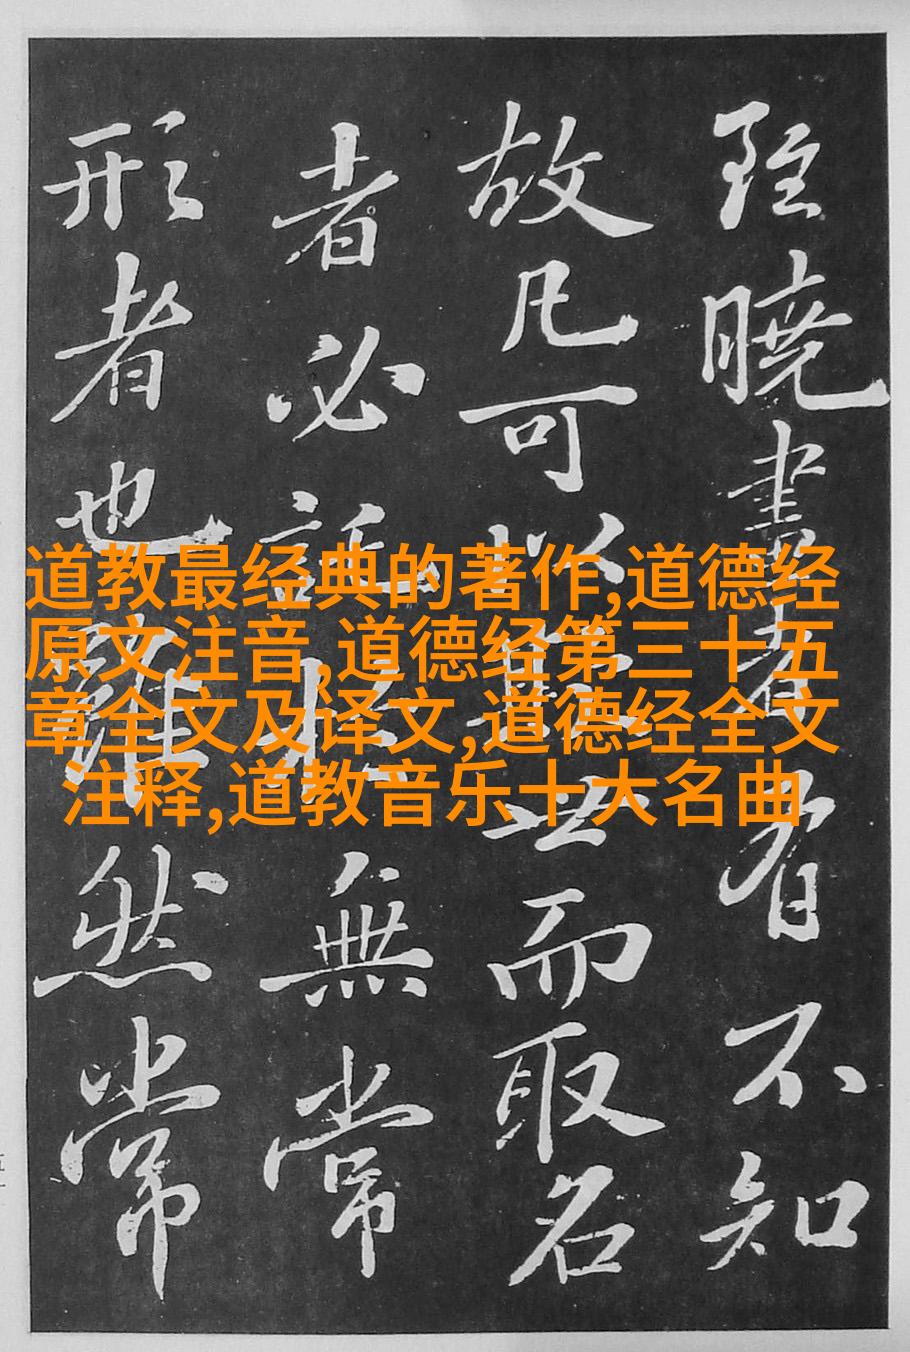 雖曉畫者有不知
故凡可以欺世而取名
者必託於無常
形者也雖然常
道教最经典的著作,道德经
原文注音,道德经第三十五
章全文及译文,道德经全文
注释,道教音乐十大名曲